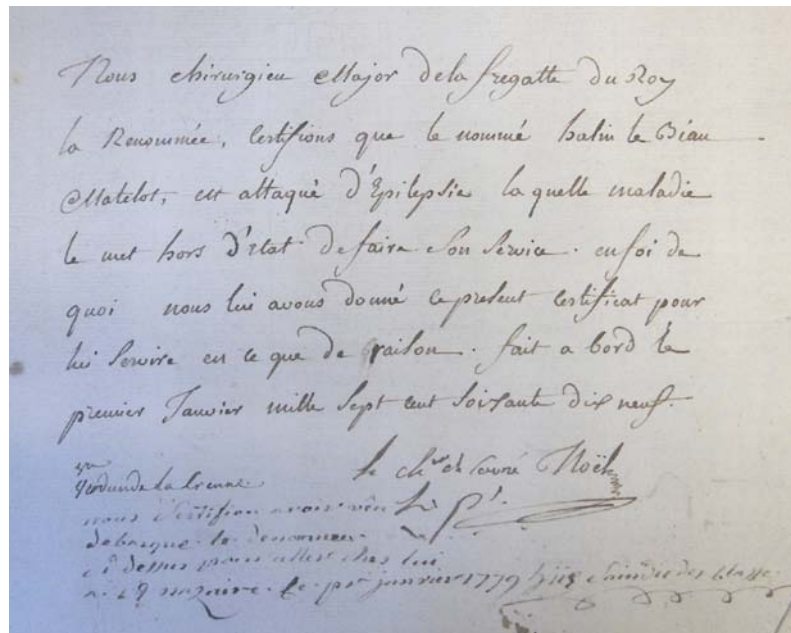 Nous chirurgien Major dela fregatte du Roy
la Renommée, Certifions que le nommé halin le Biau
Matelot, est attaqué d'Epilepsie la quelle maladie
le met hors d'etat defaire son Service. enfoi de
quoi nous lui avons donné ce present Certificat pour
lui Servire en ce que de raison. fait a bord le
premier Janvier mille Sept cent Soixante dix neuf.
le ch.er de Noël
Verdun de la Crenne
nous Certifion avoir vêu
debarque le denommer
cÿ dessus pour aller ches lui
a St nazaire. le pr janvier 1779 des Classe